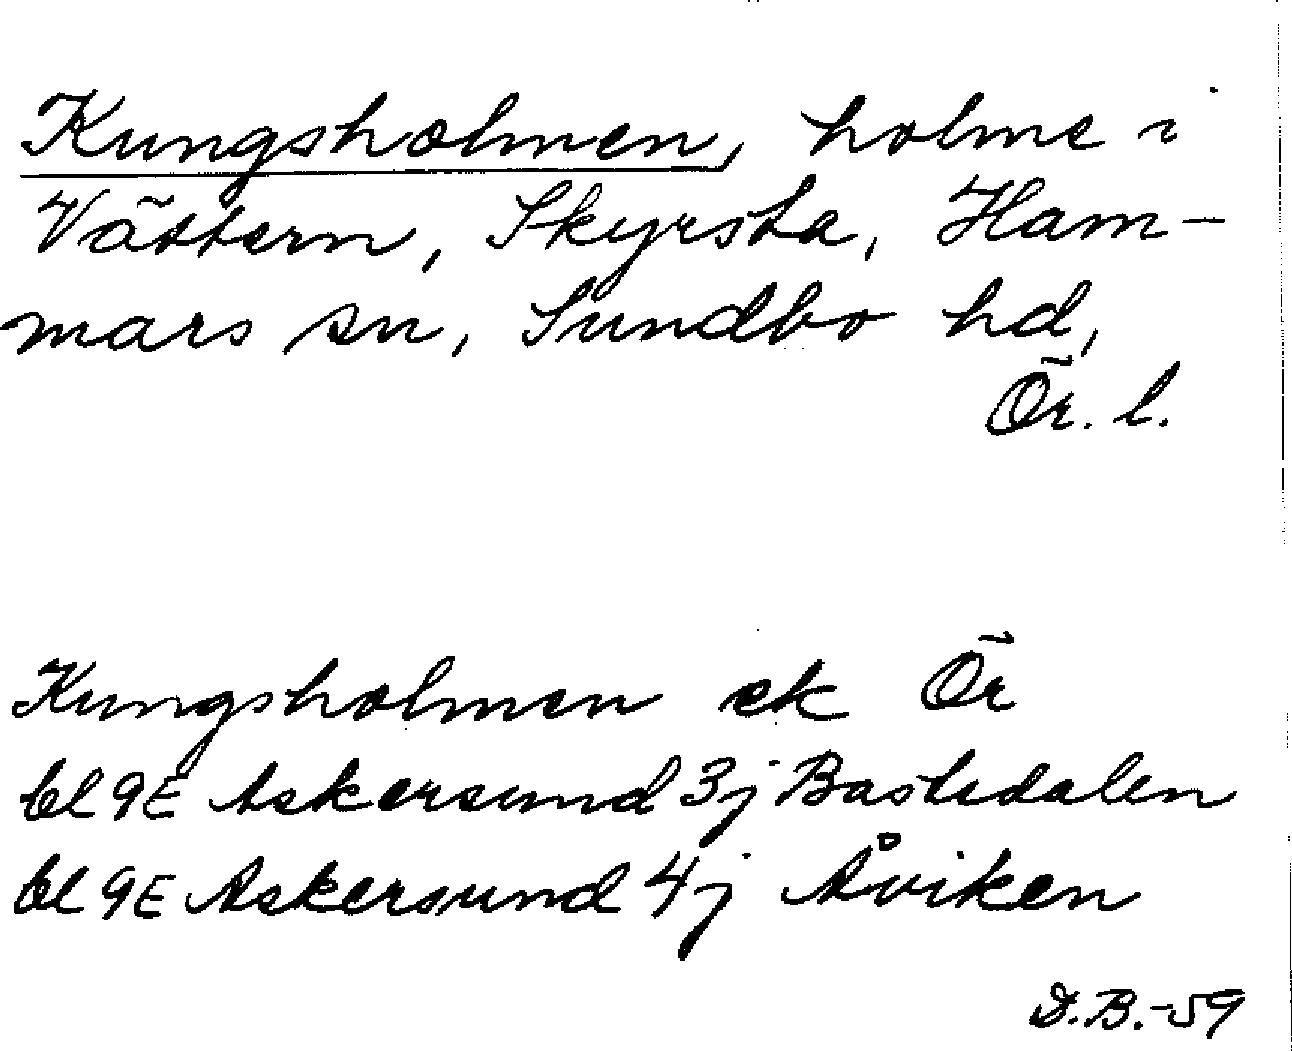 Kungsholmen, holme i
Vättern, Skyrsta, Ham-
mars sn, Sundbo hd,
Ör. l.
Kungsholmen ek Ör
bl 9E Askersund 3j Bastedalen
bl 9E Askersund 4j Åviken
D.B.-59